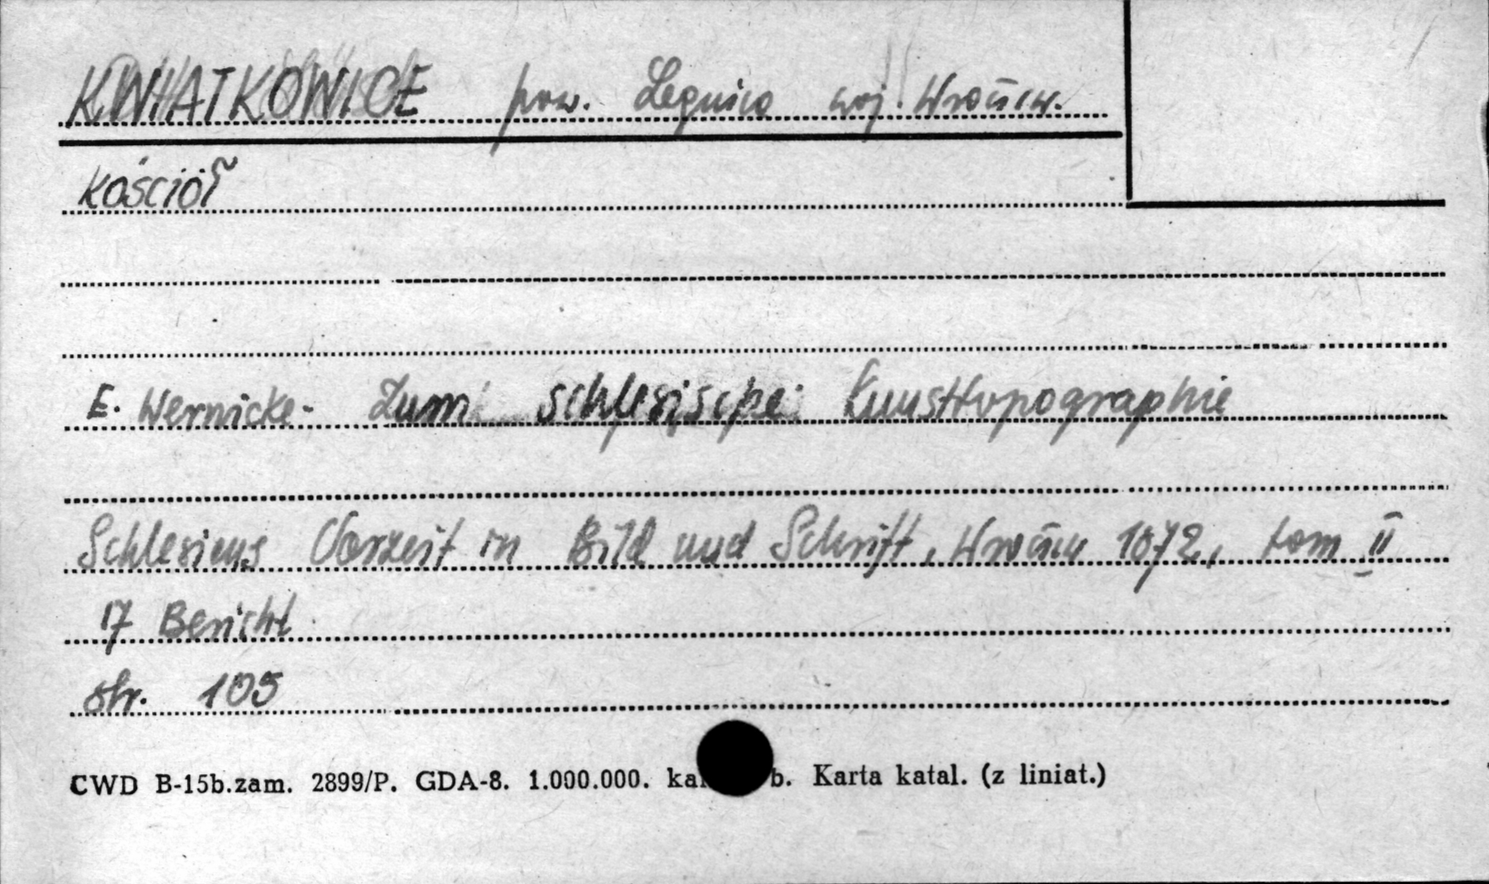 KWIATKOWICE pow. Legnica woj. Wrocław.
Kościół
E. Wernicke - Zum schlesische Kunsttopographie
Schlesiens Vorzeit in Bild und Schrift, Wrocław 1872, tom II
17 Bericht
str. 105
CWD B-15b.zam. 2899/P. GDA-8. 1.000.000. ka b. Karta katal. (z liniat.)